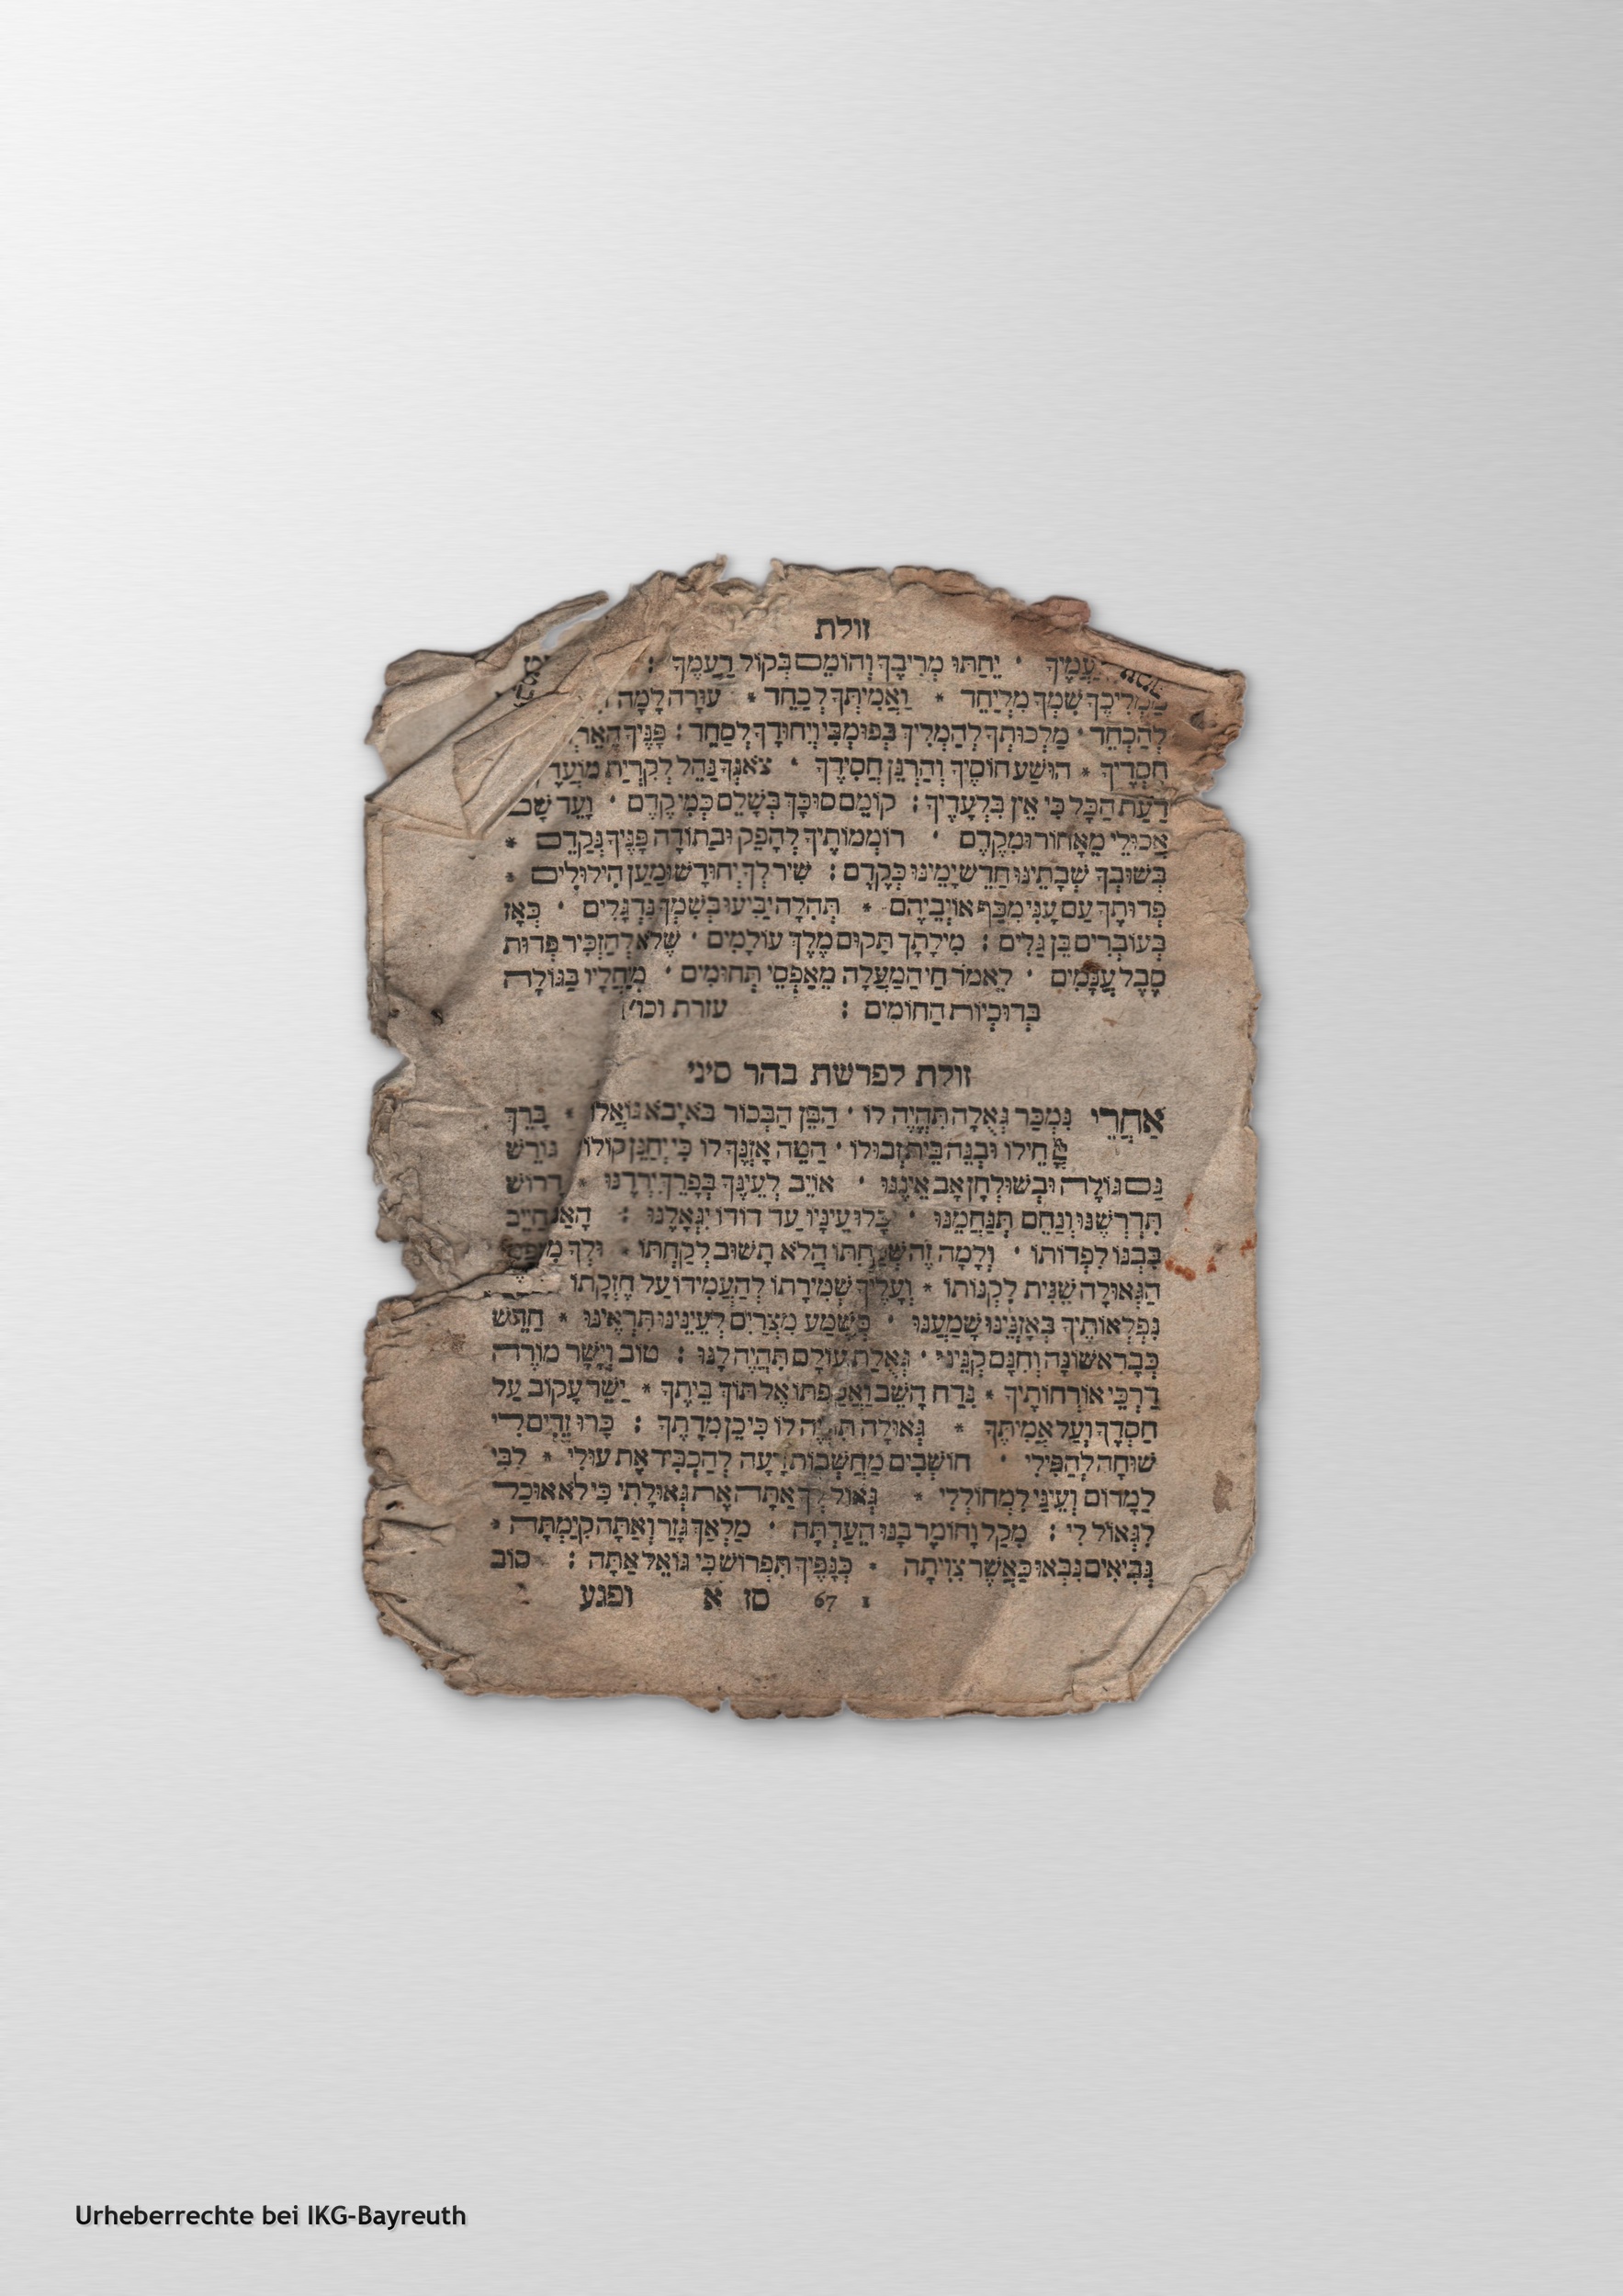 זולת
יֵחַתּוּ מְרִיבֶךָ וְהוֹמֵם בְּקוֹל רַעְמֶךָ :
שִׁמְךָ מִלְיַחֵד * וַאֲמִיתְּךָ לְכַחֵד * עוּרָה לָמָּה
לְהַכְחֵד · מַלְכוּתְךָ לְהַמְלִיךְ בְּפוּמְבֵּי וְיִחוּדָךְ לְסַחֵד : פָּנֶיךָ הָאֵר
חֲסָדֶיךָ * הוֹשַׁע חוֹסֶיךָ וְהַרְנֵּן חֲסִידֶךָ · צֹאנְךָ נַהֵל לְקִרְיַת מוֹעֲדֶ
דַּעַת הַכָּל כִּי אֵין בִּלְעָדֶיךָ : קוֹמֵם סוּכָּךְ בְּשָׁלֵם כְּמִיקֶדֶם · וָעֵד שָׁם
אֲכוּלֵי מֵאָחוֹר וּמִקֶּדֶם · רוֹמְמוֹתֶיךָ לְהָפֵק וּבְתוֹדָה פָּנֶיךָ נְקַדֵּם *
בְּשׁוּבְךָ שְׁבָתֵינוּ חַדֵּשׁ יָמֵינוּ כְּקֶדֶם : שִׁיר לְךָ יְחוּדָשׁ וּמַעַן הִילוּלִים *
פְּדוּתְךָ עַם עָנִי מִכַּף אוֹיְבֵיהֶם * תְּהִלָּה יַבִּיעוּ בְּשִׁמְךָ נִדְגָּלִים · כְּאָז
בְּעוֹבְרִים בֵּין גַּלִּים : מִילָתָךְ תָּקוּם מֶלֶךְ עוֹלָמִים · שֶׁלֹּא לְהַזְכִּיר פְּדוּת
סֵבֶל עֲנָמִים · לֵאמֹר חַי הַמַּעֲלֶה מֵאַפְסֵי תְּחוּמִים · מְחֻלָּיו בַּגּוֹלָה
בְּרוּכְיוֹת הַחוֹמִים : עזרת וכו'
זולת לפרשת בהר סיני
אַחֲרֵי נִמְכַּר גְּאֻלָּה תִּהְיֶה לּוֹ · הֲבֵן הַבְּכוֹר בֹּא יָבֹא גוֹאֲלוֹ * בָּרֵךְ
חֵילוֹ וּבְנֵה בֵּית זְבוּלוֹ · הַטֵּה אָזְנְךָ לוֹ כִּי יְחַנֵּן קוֹלוֹ גּוֹרֵשׁ
גַּם גּוֹלֶה וּבְשׁוּלְחָן אָב אֵינֶנּוּ · אוֹיֵב לְעֵינֶךָ בְּפָרֶךְ יִרְדֶּנּוּ * דָּרוֹשׁ
תִּדְרְשֶׁנּוּ וְנַחֵם תְּנַחֲמֵנוּ · כָּלוּ עֵינָיו עַד דּוֹדוֹ יִגְאָלֶנּוּ : הָאָב חַיָּיב
בִּבְנוֹ לִפְדּוֹתוֹ · וְלָמָּה זֶה שְׁכַחְתּוֹ הֲלֹא תָשׁוּב לְקַחְתּוֹ * וּלְךָ
הַגְּאוּלָּה שֵׁנִית לִקְנוֹתוֹ * וְעָלֶיךָ שְׁמִירָתוֹ לְהַעֲמִידוֹ עַל חֶזְקָתוֹ
נִפְלְאוֹתֶיךָ בְּאָזְנֵינוּ שָׁמַעְנוּ · כְּשֵׁמַע מִצְרַיִם לְעֵינֵינוּ תַּרְאֵינוּ * חַדֵּשׁ
כְּבָרִאשׁוֹנָה וְחִנָּם קְנֵינִי · גְּאֻלַּת עוֹלָם תִּהְיֶה לָּנוּ : טוֹב וְיָשָׁר מוֹרֶה
דַרְכֵי אוֹרְחוֹתֶיךָ * נִדָּח הָשֵׁב וַאֲסַפְתּוֹ אֶל תּוֹךְ בֵּיתֶךָ * יַשֵּׁר עָקוֹב עַל
חַסְדְּךָ וְעַל אֲמִיתֶּךָ * גְּאוּלָּה תִּהְיֶה לּוֹ כִּי כֵן מִדָּתֶךָ : כָּרוּ זֵדִים לִי
שׁוּחָה לְהַפִּילִי · חוֹשְׁבִים מַחֲשְׁבוֹת רָעָה לְהַכְבִּיד אֶת עוּלִּי * לִבִּי
לַמָּרוֹם וְעֵינַי לִמְחוֹלְלִי * גְּאוֹל לְךָ אַתָּה אֶת גְּאוּלָּתִי כִּי לֹא אוּכַל
לִגְאוֹל לִי : מִקַּל וָחוֹמֶר בָּנוּ הֵעַדְתָּה · מַלְאָךְ גָּזַר וְאַתָּה קִיַּמְתָּה *
נְבִיאִים נִבְּאוּ כַּאֲשֶׁר צִוִּיתָה * כְּנָפֶיךָ תִּפְרוֹשׂ כִּי גוֹאֵל אַתָּה : סוֹב
1 67 סז א ופגע
Urheberrechte bei IKG-Bayreuth